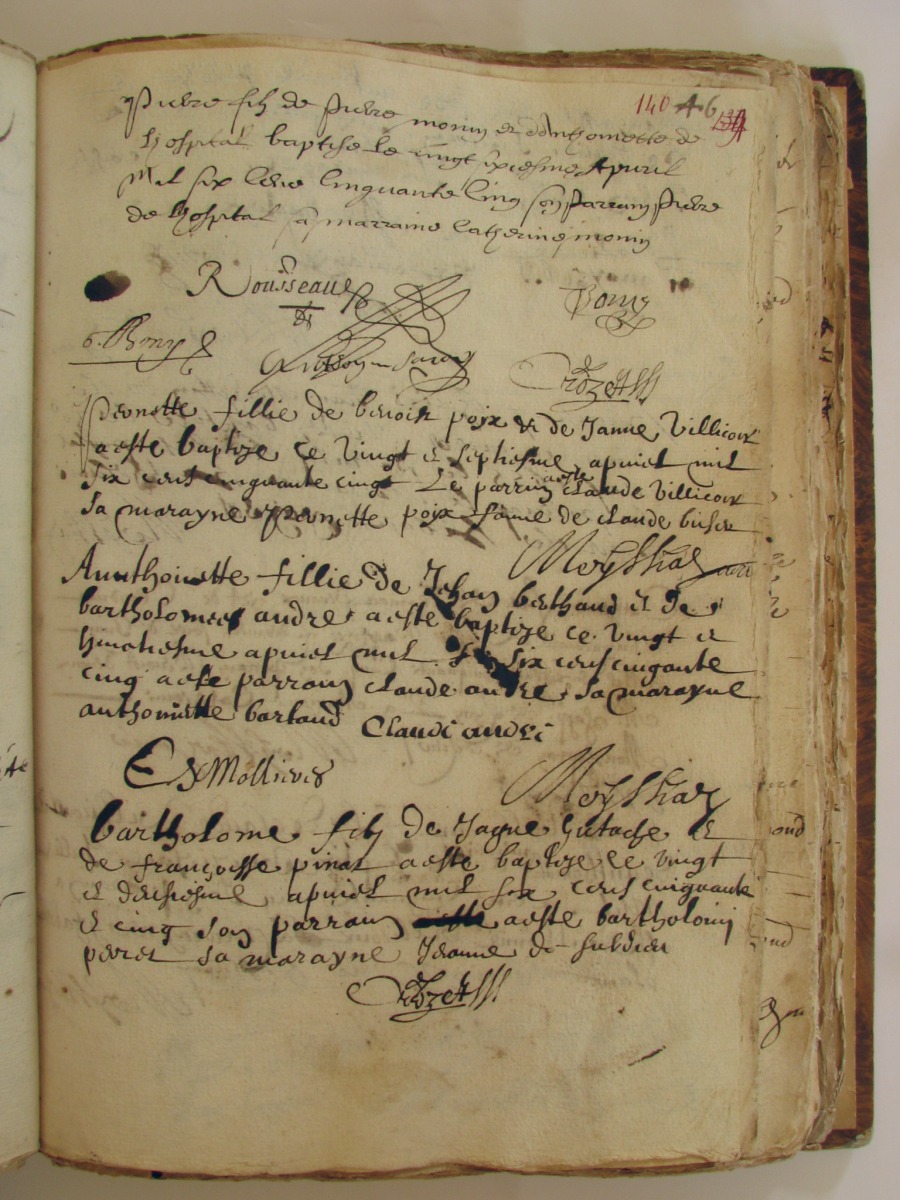 140 46
Pierre filz de Pierre monin et Anthoinette de
lhospital baptise le vingt sixiesme Apuril
Mil six Cens Cinquante Cinq son Parrain Pierre
de lhospital sa marraine Catherine monin
Rousseau
Bony
Bony
Rozet
Pernette fillie de benoist poix et de Janne Villicour
a este baptize ce vingt et septiesme apuriel mil
six cens cinquante cinqt Le parrin a este claude Villicour
Sa marayne Pernette poix fame de claude
Meyssiaz
Annthoinette fillie de Jehan berthaud et de
bartholomees andre a este baptize ce vingt et
huictiesme apuriel mil six cens cinqante
cinq a este parrain claude andre sa marayne
anthoinette bartaud
Claude andre
Ex Mollieres
Meyssiaz
bartholome filz de Jaque Eutache et
de françoisse pinat a este baptize ce vingt
et deusiesme apuriel mil six cens cinquante
et cinq son parrain a este bartholomi
peret sa marayne Jeanne de
Rozet